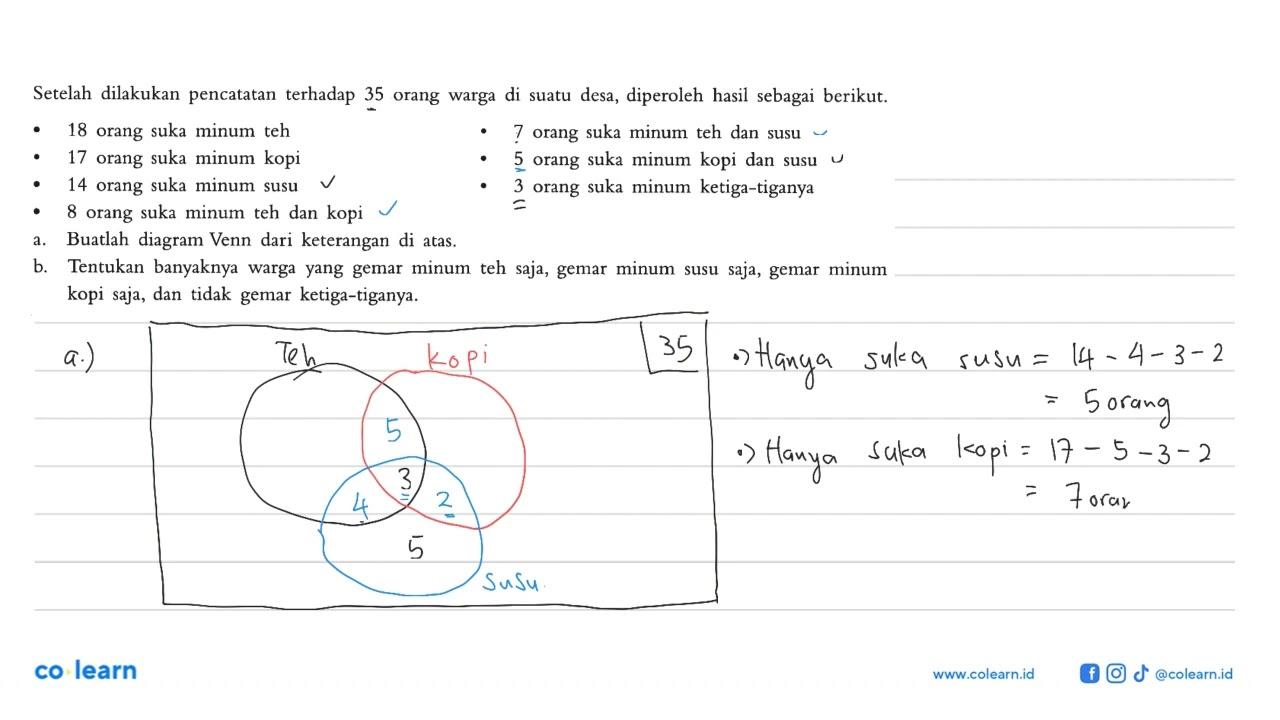 Setelah dilakukan pencatatan terhadap 35 orang warga di suatu desa, diperoleh hasil sebagai berikut.
• 18 orang suka minum teh
• 17 orang suka minum kopi
• 14 orang suka minum susu ✓
• 8 orang suka minum teh dan kopi ✓
• 7 orang suka minum teh dan susu
• 5 orang suka minum kopi dan susu
• 3 orang suka minum ketiga-tiganya
a. Buatlah diagram Venn dari keterangan di atas.
b. Tentukan banyaknya warga yang gemar minum teh saja, gemar minum susu saja, gemar minum
kopi saja, dan tidak gemar ketiga-tiganya.
a.)
Teh
kopi
35
5
3
4
2
5
susu.
•) Hanya suka susu = 14 - 4 - 3 - 2
= 5 orang
•) Hanya suka kopi = 17 - 5 - 3 - 2
= 7 oran
co learn
www.colearn.id
@colearn.id